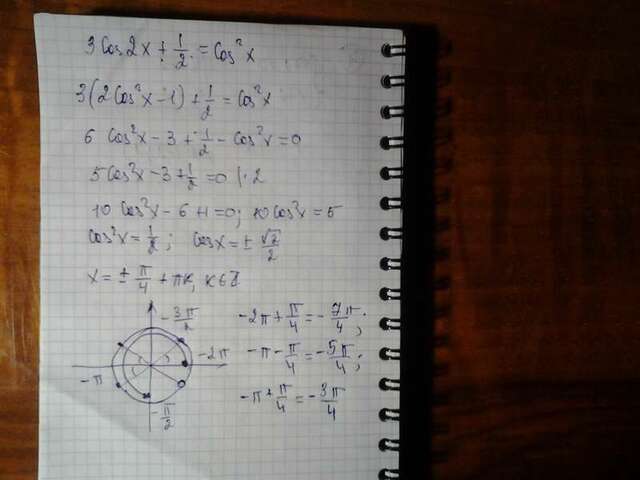 3 Cos 2x + 1/2 = Cos²x
3(2Cos²x - 1) + 1/2 = Cos²x
6 Cos²x - 3 + 1/2 - Cos²x = 0
5Cos²x - 3 + 1/2 = 0 | · 2
10 Cos²x - 6 + 1 = 0; 10 Cos²x = 5
Cos²x = 1/2; Cosx = ± √2/2
x = ± π/4 + πk, k ∈ Z
- 3π/2
- 2π
- π
- π/2
-2π + π/4 = - 7π/4;
-π - π/4 = - 5π/4;
-π + π/4 = - 3π/4